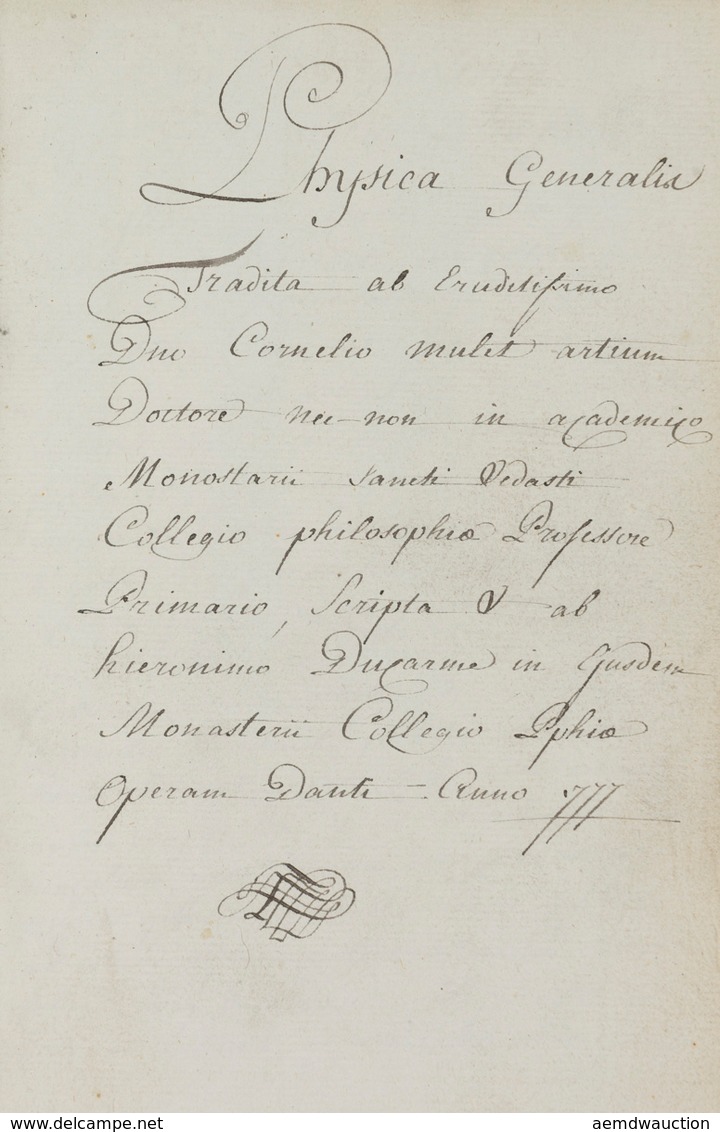 Physica Generalis
Tradita ab Eruditissimo
Dno Cornelio mulet artium
Doctore nec-non in academico
Monostarii sancti Vedasti
Collegio philosophiæ Professore
Primario, Scripta & ab
hieronimo Ducarme in Ejusdem
Monasterii Collegio Pphiæ
Operam Danti - Anno 1777
www.delcampe.net
aemdwauction